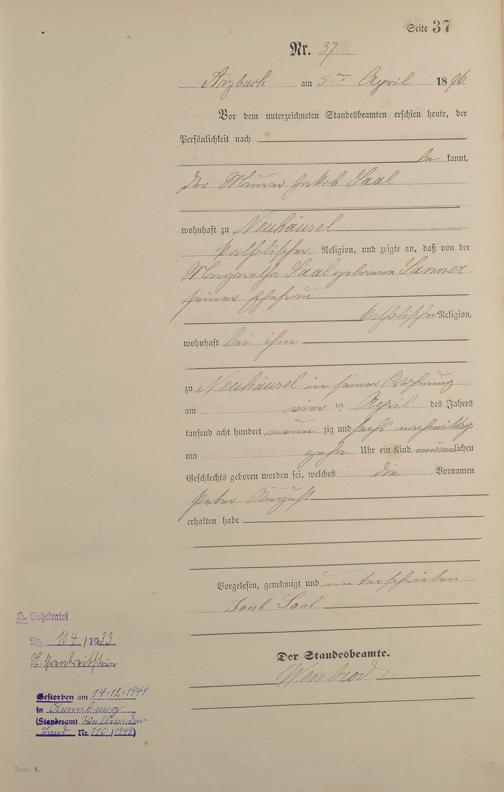 Seite 37
Nr. 37
Arzbach am 5ten April 1896
Vor dem unterzeichneten Standesbeamten erschien heute, der
Persönlichkeit nach
be kannt,
der Maurer Jakob Saal
wohnhaft zu Neuhäusel
katholischer Religion, und zeigte an, daß von der
Margaretha Saal geborene Sanner
seiner Ehefrau
katholischer Religion,
wohnhaft bei ihm
zu Neuhäusel in seiner Wohnung
am vier ten April des Jahres
tausend acht hundert neun zig und sechs nachmittags
um zehn Uhr ein Kind männlichen
Geschlechts geboren worden sei, welches die Vornamen
Peter August
erhalten habe
Vorgelesen, genehmigt und unterschrieben
Jacob Saal
Der Standesbeamte.
H. Geheiratet
Nr. 104 / 1933
Gestorben am 14.12.1949
in
(Standesamt
Nr. 110 / 1949)
Form. A.